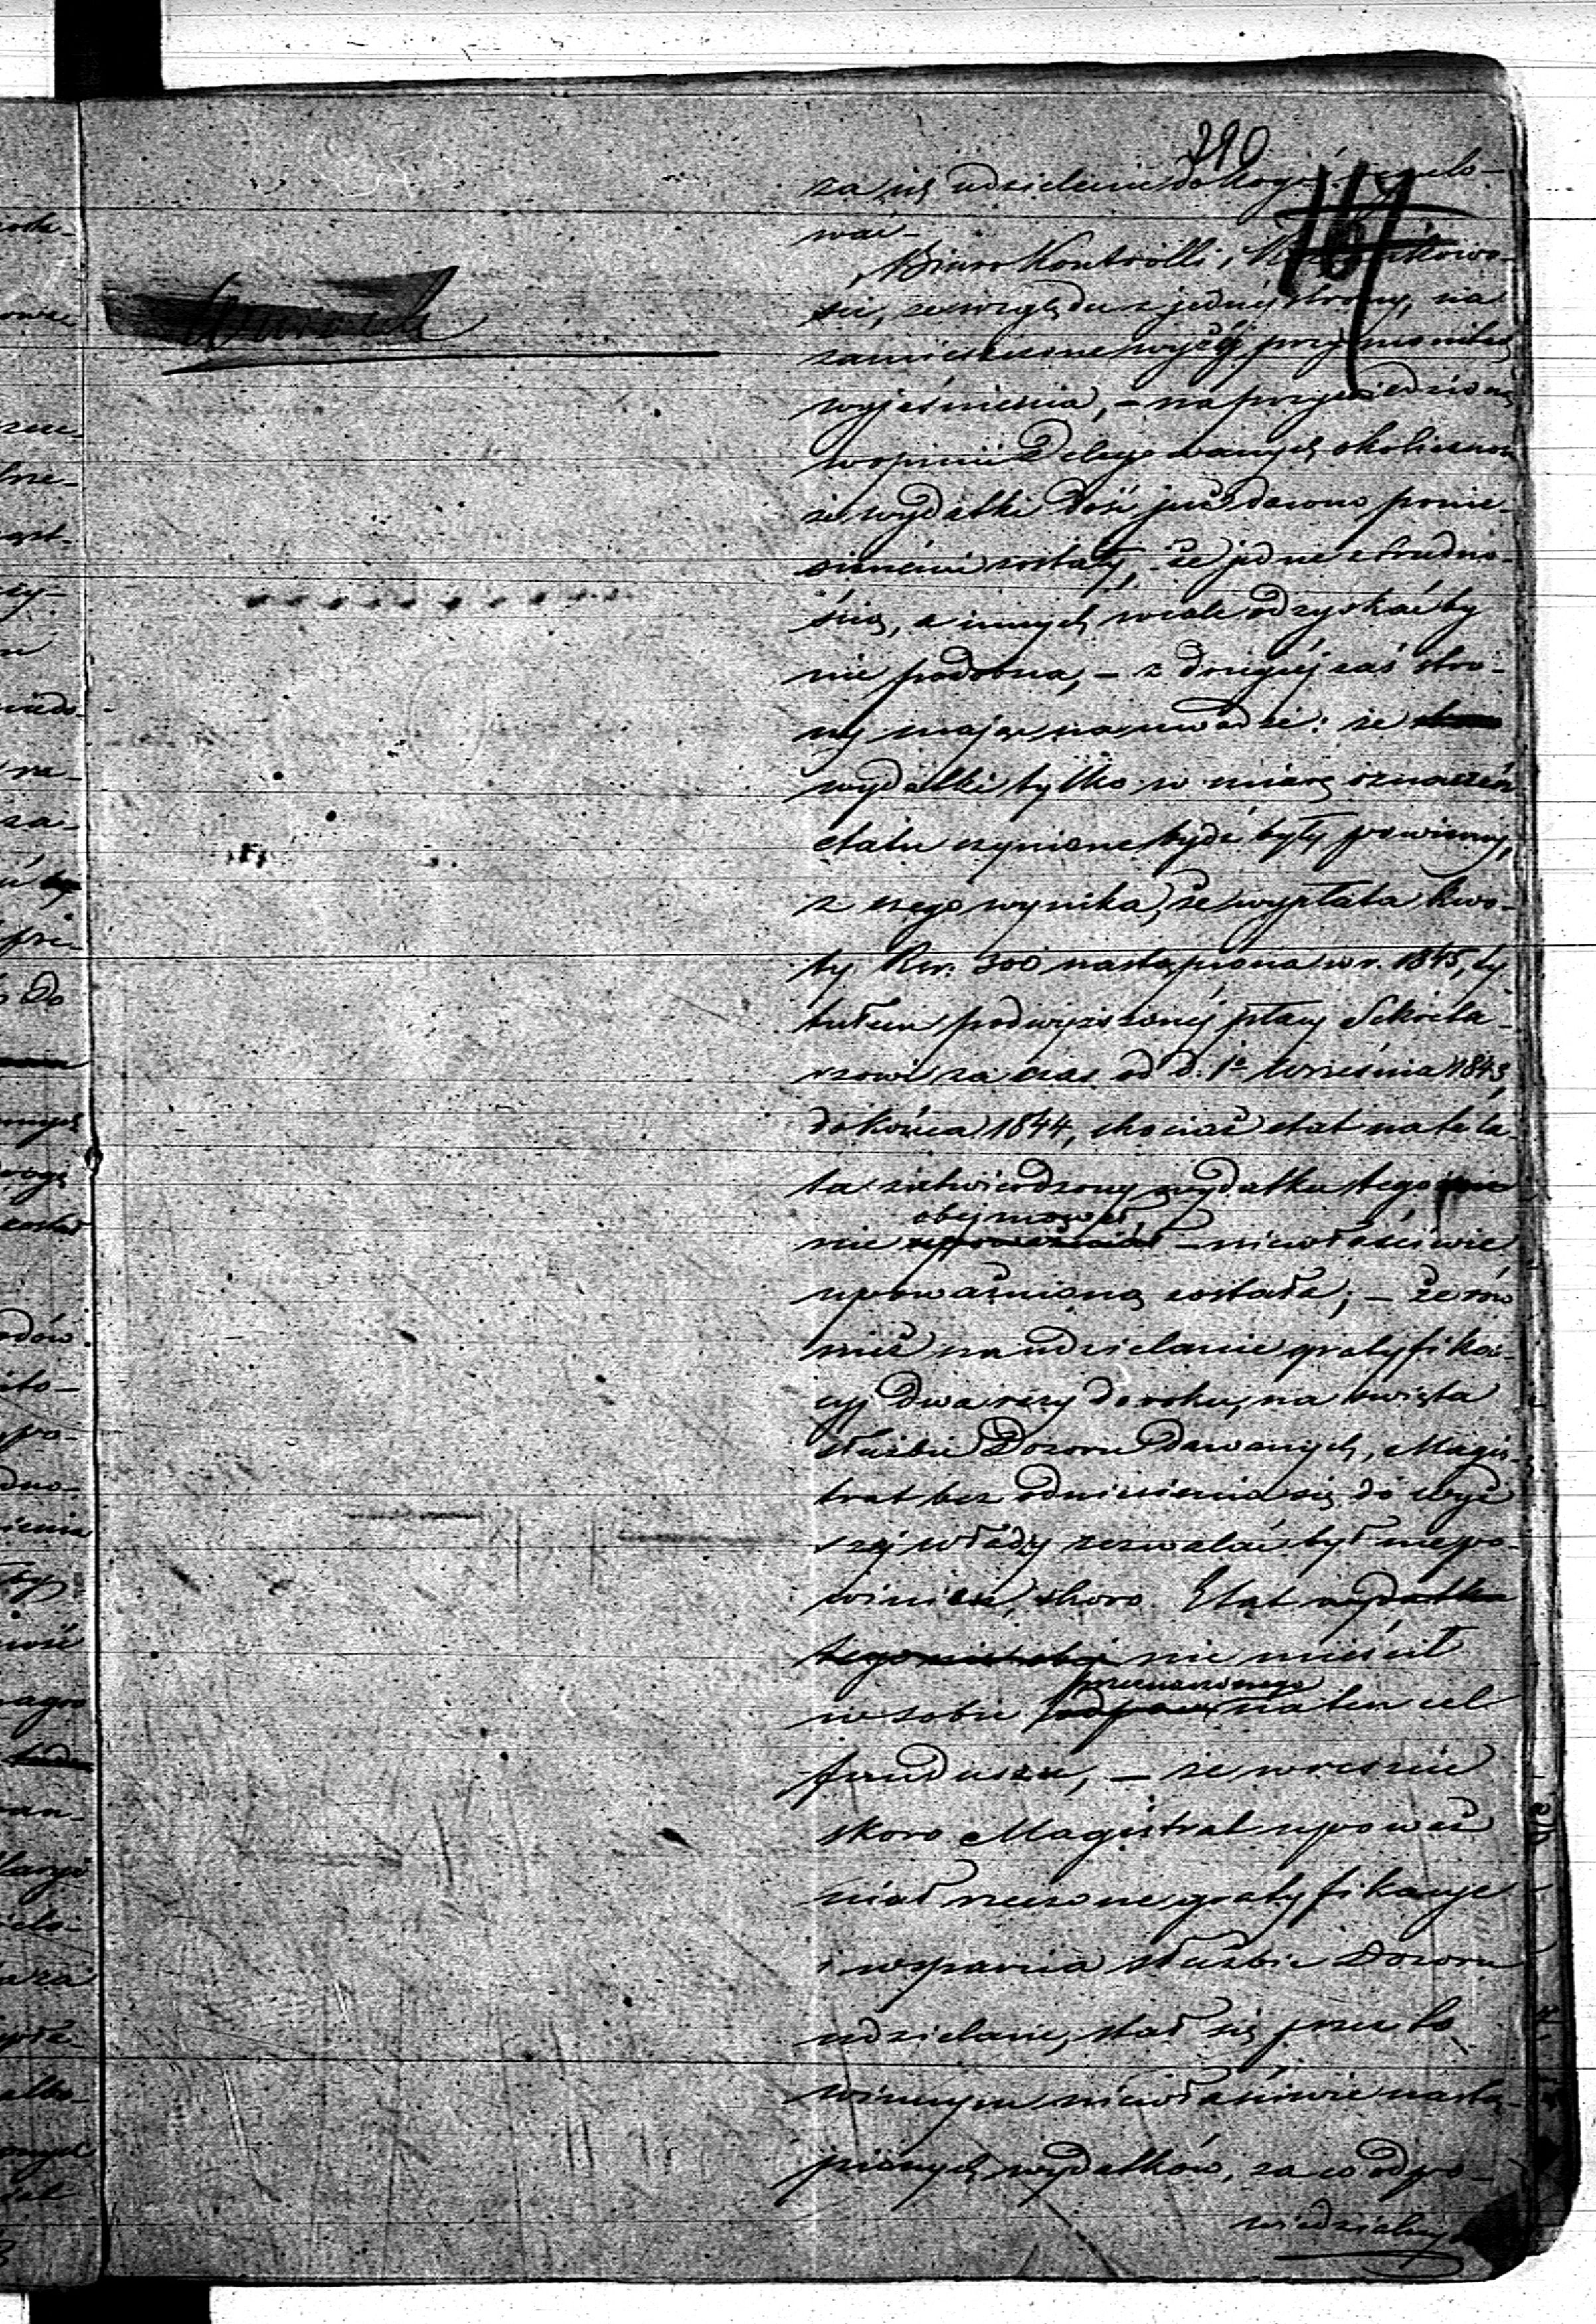 290
167
za ich udzielenie do kogoś regulo-
wać -
Wniosek
Biuro Kontrolli, i Rachunkowo-
ści, ze względu z jednéj strony, na
zamieszczone wyżéj przy monitach
wyjaśnienia, – na przywiedzioną
w opinii Delegowanych okoliczność
że wydatki dość już dawno ponie-
sionemi zostały, że jedne z trudno-
ścią, a innych wcale odzyskać by
nie podobna, – z drugiéj zaś stro-
ny mając na uwadze: że
wydatki tylko w miarę oznaczeń
etatu czynione bydź były powinny,
z czego wynika, że wypłata kwo-
ty Rsr. 300 nastąpiona w r. 1845, ty-
tułem podwyższonéj płacy Sekreta-
rzowi za czas od d. 1o Września 1843,
do końca 1844, chociaż etat na te la-
ta zatwierdzony wydatku tego
obejmował,
nie upoważniał – niewłaściwie
upoważnioną została; – że rów
nież na udzielanie gratyfika-
cyj dwa razy do roku, na święta
służbie Dozoru dawanych, Magis-
trat bez odniesienia się do wyż
széj władzy zezwalać był niepo-
winien, skoro Etat wydatku
tego nie obej nie mieścił
przeznaczonego
w sobie na ten cel
funduszu, – że wreszcie
skoro Magistrat upoważ
niał rzeczone gratyfikacye
i wsparcia służbie Dozoru
udzielane, stał się przez to
winnym niewłaściwie nastą-
pionych wydatków, za co odpo-
wiedzialnych